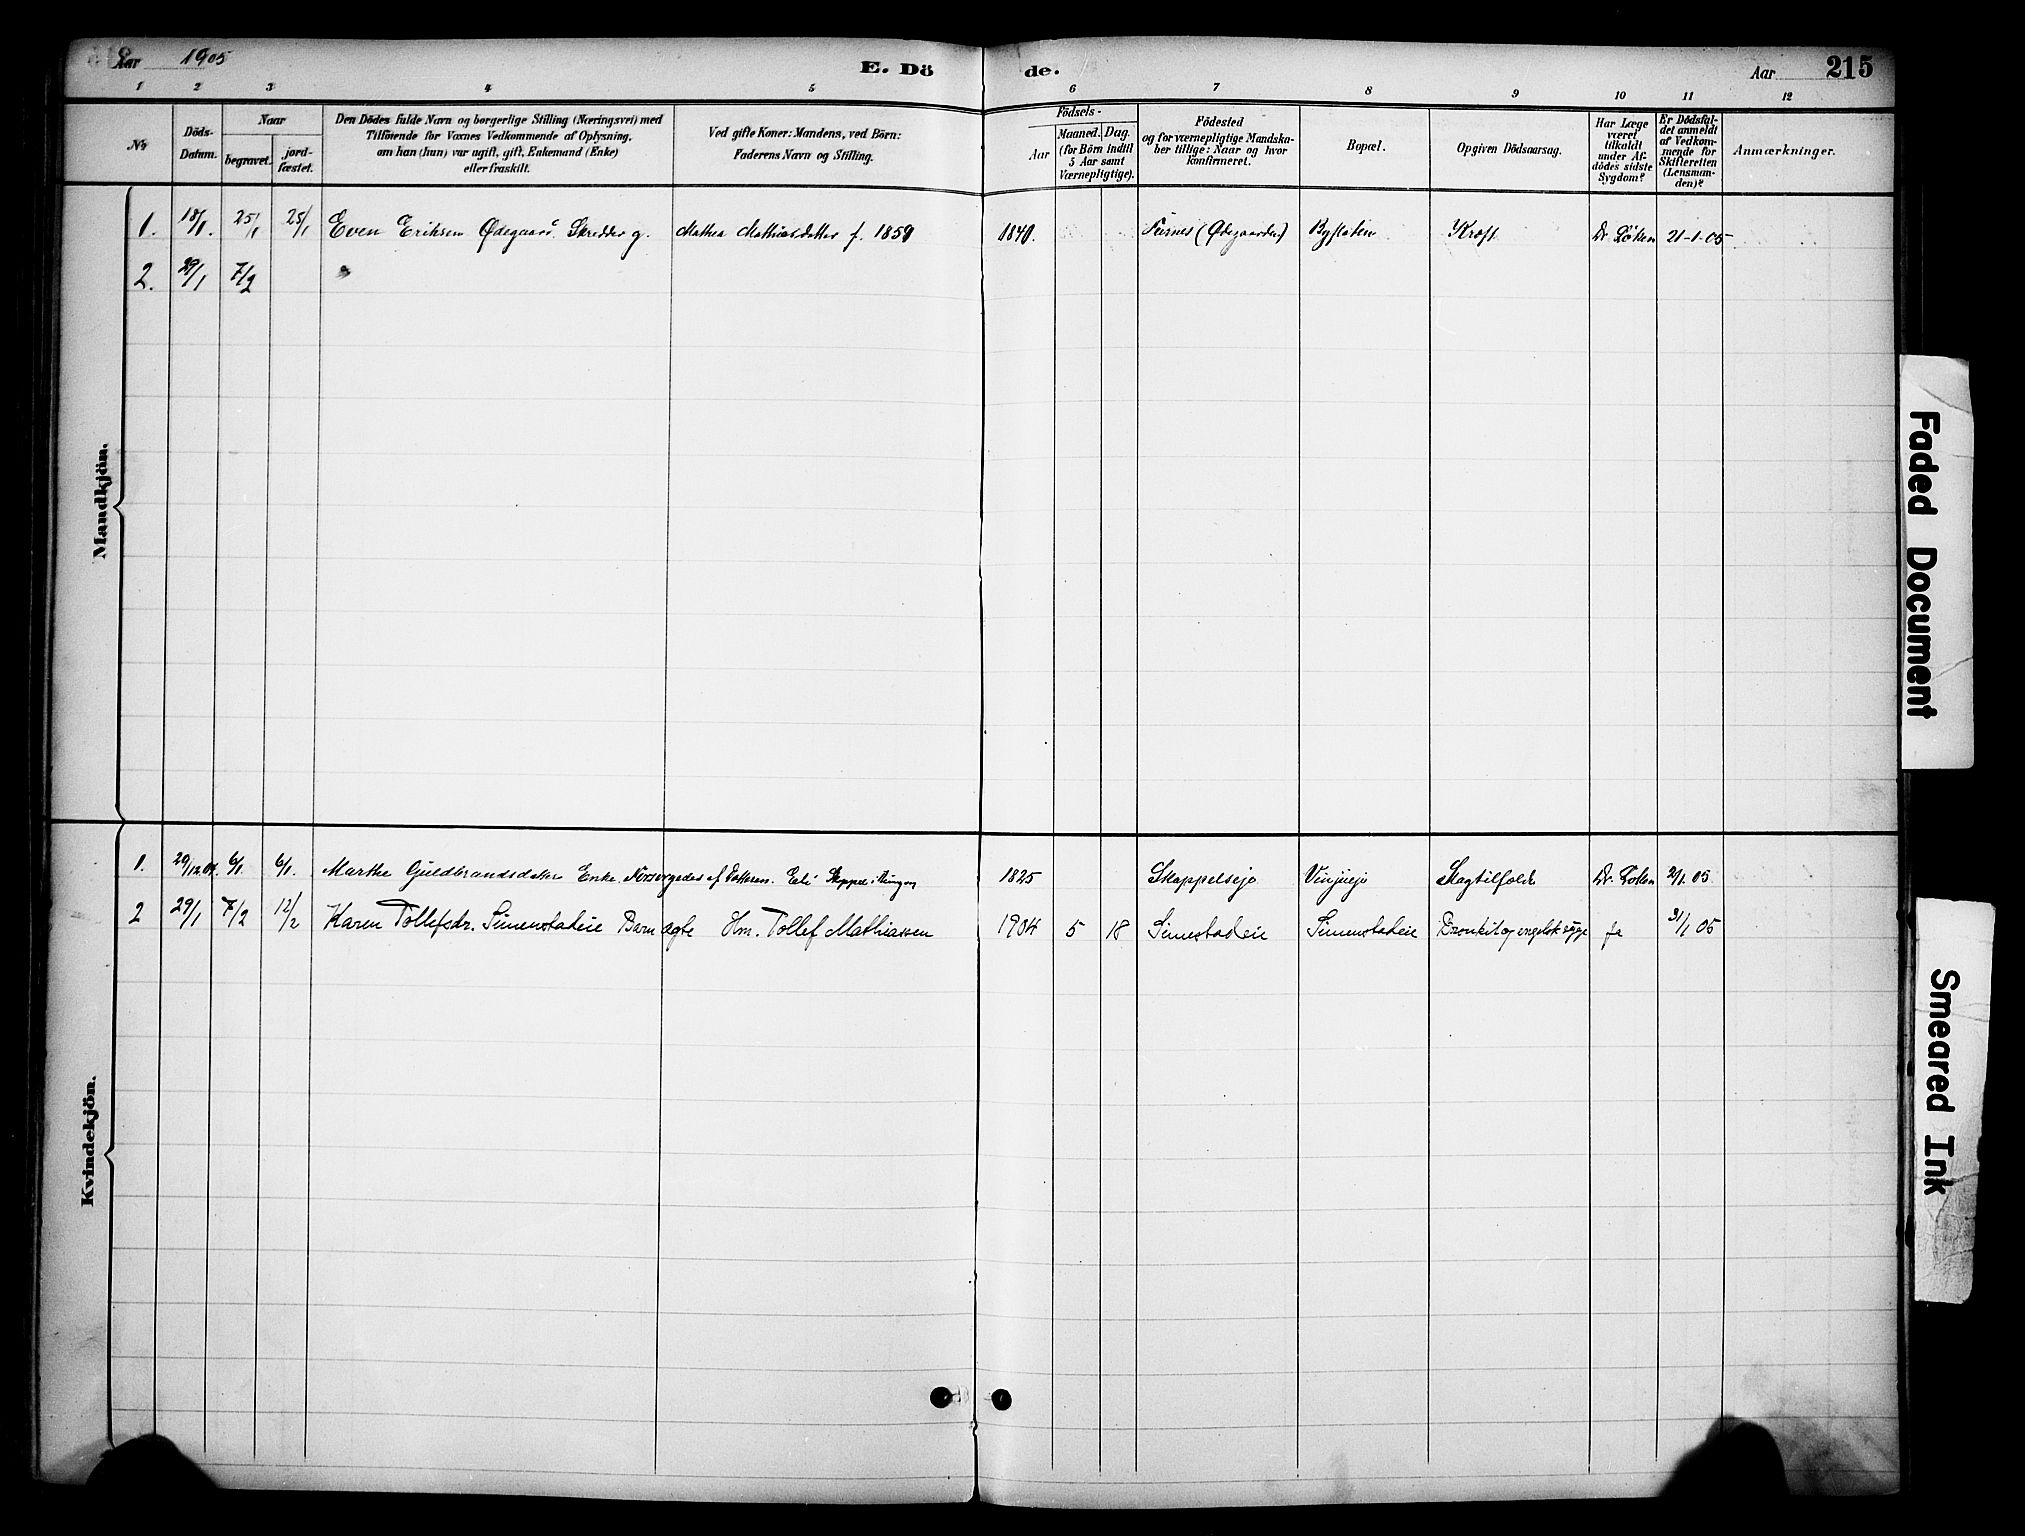 Aar 1905
E. Dö de.
Aar 215
1 2 3 4 5 6 7 8 9 10 11 12
No
Döds-Datum.
Naar
begravet.
jord-fæstet.
Den Dödes fulde Navn og borgerlige Stilling (Næringsvei) med
Tilföiende for Voxnes Vedkommende af Oplysning,
om han (hun) var ugift, gift, Enkemand (Enke)
eller fraskilt.
Ved gifte Koner: Mandens, ved Börn:
Faderens Navn og Stilling.
Födsels-
Aar
Maaned. Dag.
(for Börn indtil
5 Aar samt
Værnepligtige).
Födested
og for værnepligtige Mandska-
ber tillige: Naar og hvor
konfirmeret.
Bopæl.
Opgiven Dödsaarsag.
Har Læge
været
tilkaldt
under Af-
dödes sidste
Sygdom?
Er Dödsfal-
det anmeldt
af Vedkom-
mende for
Skifteretten
(Lensman-
den)?
Anmærkninger.
Mandkjön.
1. 18/1. 25/1 25/1 Even Eriksen Ødegaard Skredder g. Mathea Mathiasdatter f. 1859 1840. Furnes (Ødegaarden) Byflaten Kræft Dr. Löken 21-1-05
2. 29/1 7/2
Kvindekjön.
1. 29/12.04. 6/1. 6/1. Marthe Guldbrandsdatter Enke. Forsørgedes af Datteren. 1825 Skappelsejo Vinjuejo Slagtilfælde Dr. Loken 2/1.05
2 29/1 7/2 12/2 Karen Tollefsdr. Simenstadeie Barn ægte Hm. Tollef Mathiassen 1904 5 18 Simestadeie Simenstadeie Bronkit og engelsk syge ja 31/1 05
Faded Document
Smeared Ink